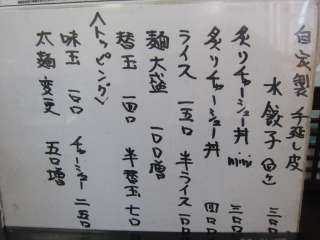 自家製 手延し皮
水餃子(四ヶ) 三〇〇
炙りチャーシュー丼 mini 三〇〇
炙りチャーシュー丼 四〇〇
ライス 一五〇 半ライス 一〇〇
麺大盛 一〇〇増
替玉 一四〇 半替玉 七〇
〈トッピング〉
味玉 一〇〇 チャーシュー 二五〇
太麺変更 五〇増